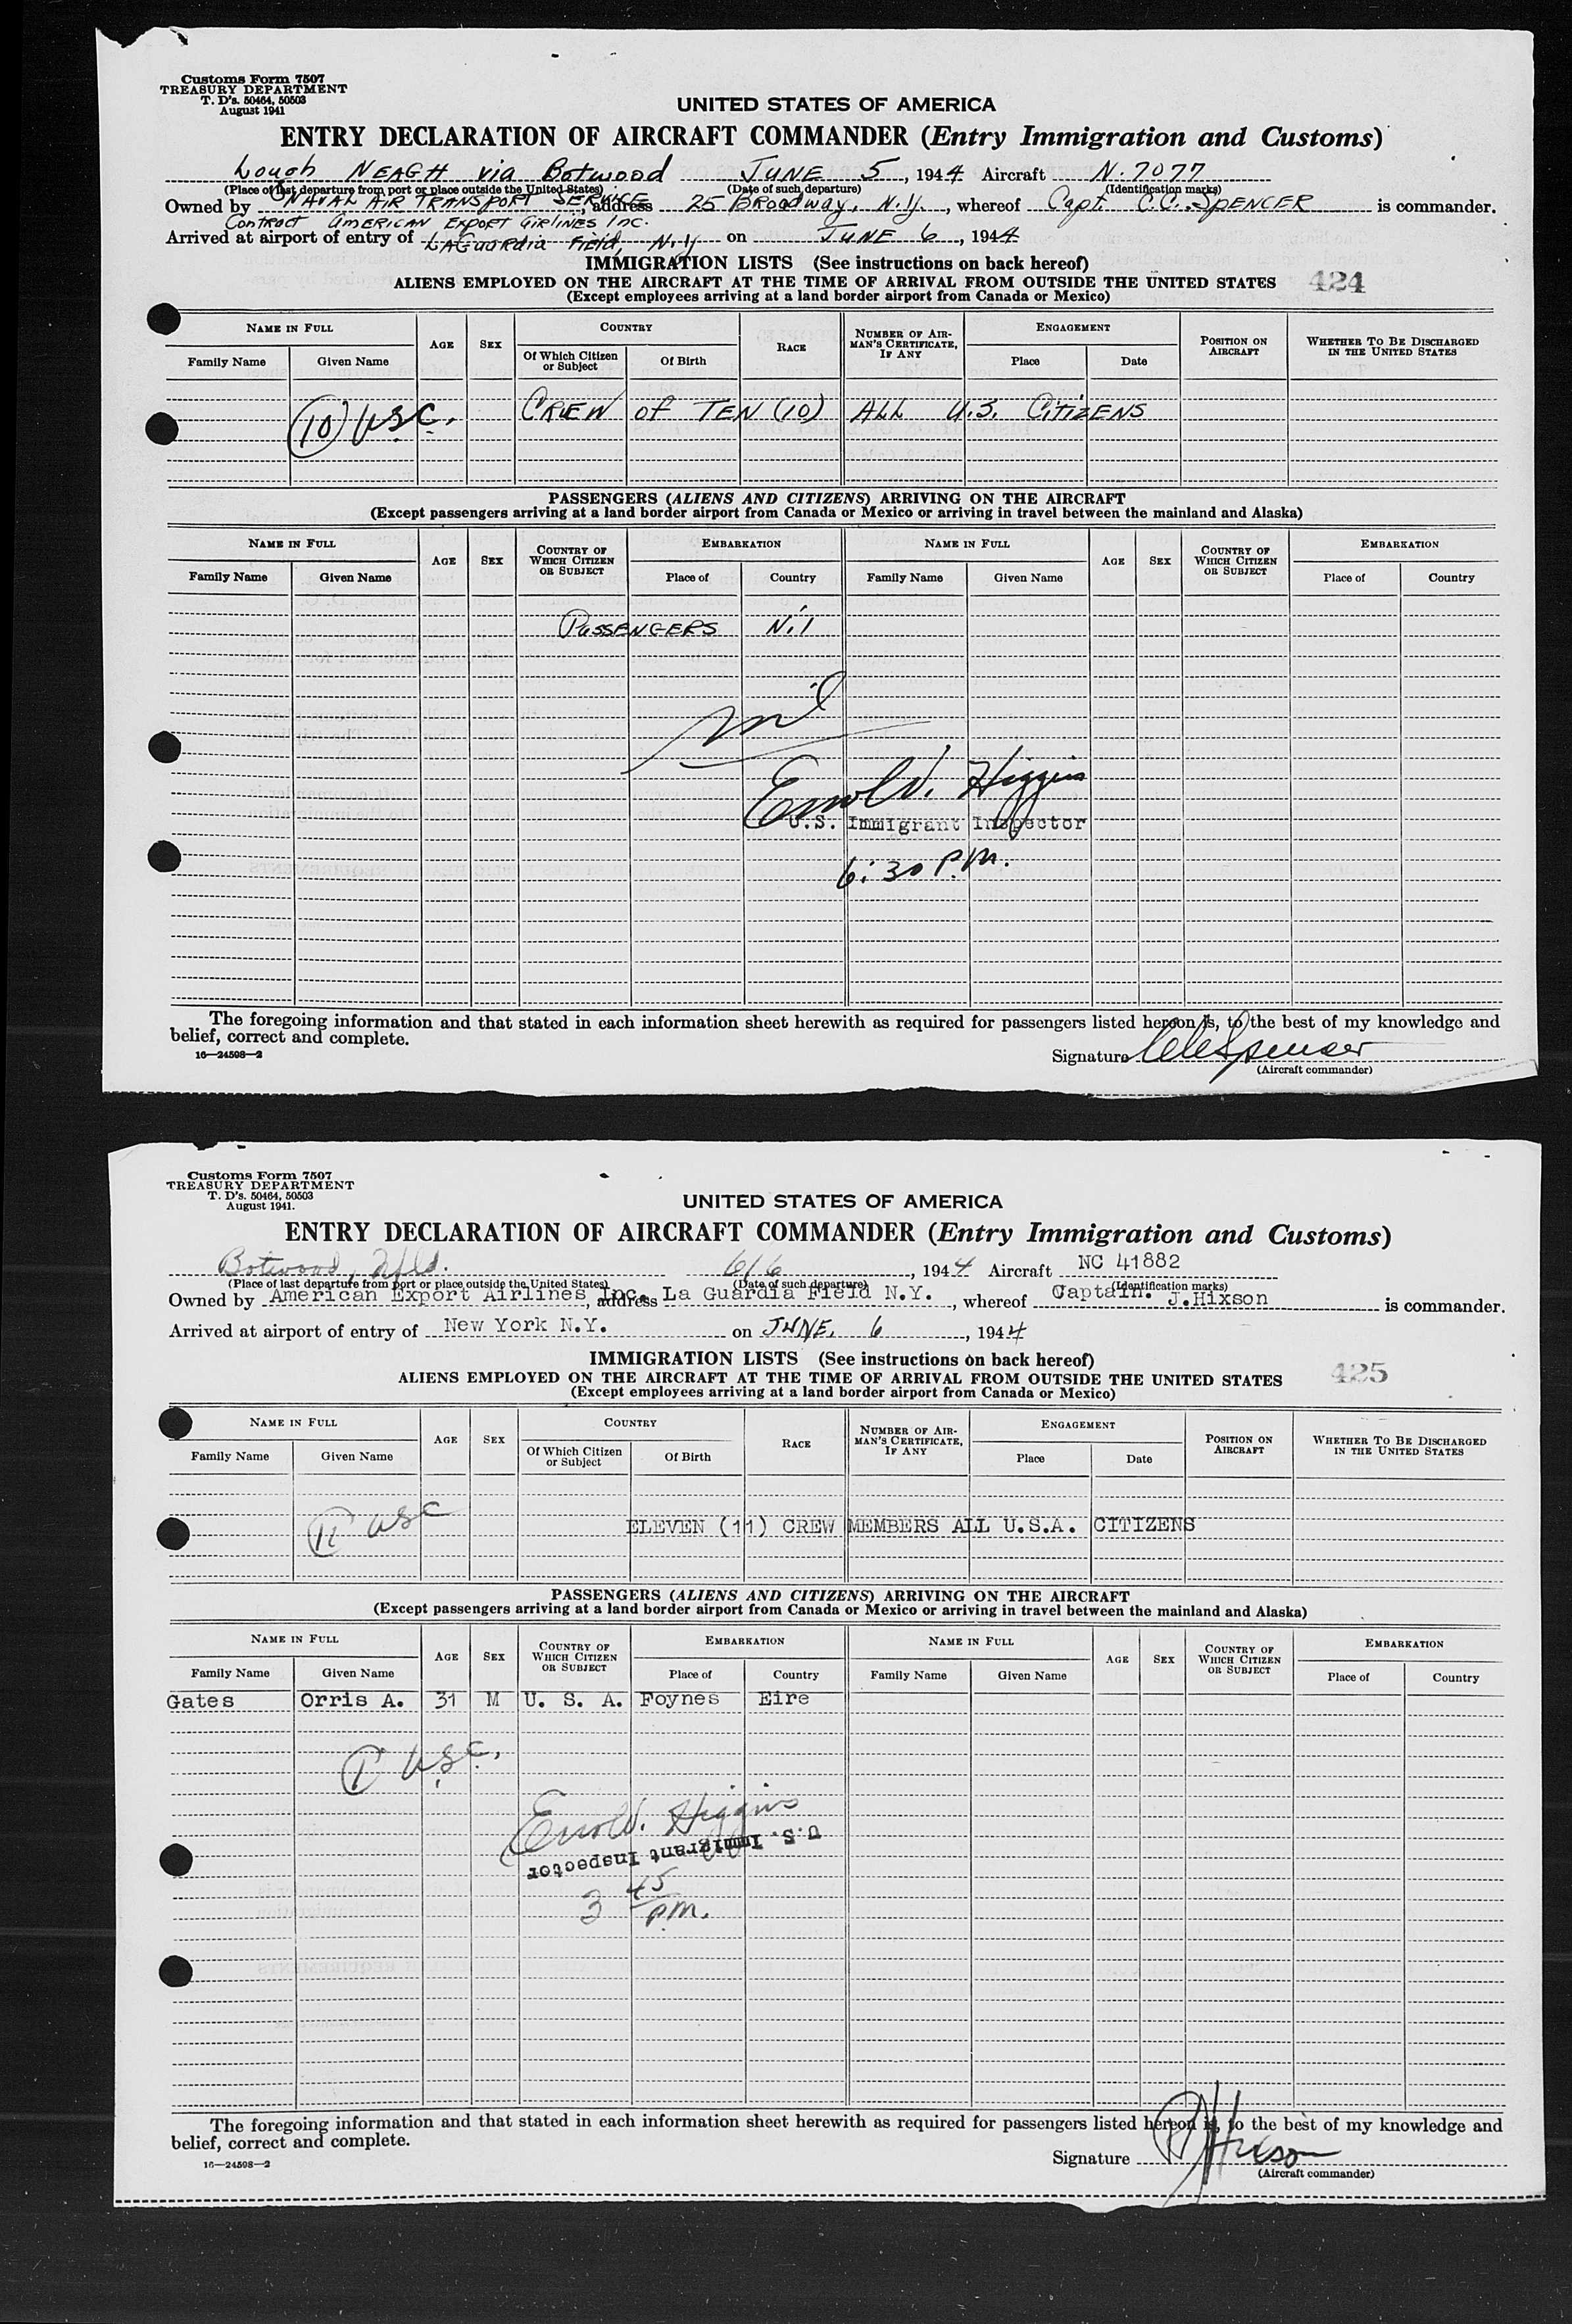 Customs Form 7507
TREASURY DEPARTMENT
T. D's. 50464, 50503
August 1941
UNITED STATES OF AMERICA
ENTRY DECLARATION OF AIRCRAFT COMMANDER (Entry Immigration and Customs)
Lough NEAGH via Botwood JUNE 5, 1944 Aircraft N.7077
(Place of last departure from port or place outside the United States) (Date of such departure) (Identification marks)
Owned by NAVAL AIR TRANSPORT SERVICE, address 25 Broadway, N.Y., whereof Capt. C.C. SPENCER is commander.
Contract AMERICAN EXPORT AIRLINES INC.
Arrived at airport of entry of LAGuardia Field, N.Y on JUNE 6, 1944
IMMIGRATION LISTS (See instructions on back hereof)
ALIENS EMPLOYED ON THE AIRCRAFT AT THE TIME OF ARRIVAL FROM OUTSIDE THE UNITED STATES 424
(Except employees arriving at a land border airport from Canada or Mexico)
NAME IN FULL AGE SEX COUNTRY RACE NUMBER OF AIRMAN'S CERTIFICATE, IF ANY ENGAGEMENT POSITION ON AIRCRAFT WHETHER TO BE DISCHARGED IN THE UNITED STATES
Family Name Given Name Of Which Citizen or Subject Of Birth Place Date
(10) USC. CREW of TEN (10) ALL U.S. CITIZENS
PASSENGERS (ALIENS AND CITIZENS) ARRIVING ON THE AIRCRAFT
(Except passengers arriving at a land border airport from Canada or Mexico or arriving in travel between the mainland and Alaska)
NAME IN FULL AGE SEX COUNTRY OF WHICH CITIZEN OR SUBJECT EMBARKATION NAME IN FULL AGE SEX COUNTRY OF WHICH CITIZEN OR SUBJECT EMBARKATION
Family Name Given Name Place of Country Family Name Given Name Place of Country
PASSENGERS Nil
nil
Errol V. Higgins
U.S. Immigrant Inspector
6:30 P.M.
The foregoing information and that stated in each information sheet herewith as required for passengers listed hereon is, to the best of my knowledge and
belief, correct and complete.
16—24598—2
Signature CCSpencer
(Aircraft commander)
Customs Form 7507
TREASURY DEPARTMENT
T. D's. 50464, 50503
August 1941.
UNITED STATES OF AMERICA
ENTRY DECLARATION OF AIRCRAFT COMMANDER (Entry Immigration and Customs)
Botwood, Nfld. 6/6, 1944 Aircraft NC 41882
(Place of last departure from port or place outside the United States) (Date of such departure) (Identification marks)
Owned by American Export Airlines Inc., address La Guardia Field N.Y., whereof Captain. J.Hixson is commander.
Arrived at airport of entry of New York N.Y. on JUNE. 6, 1944
IMMIGRATION LISTS (See instructions on back hereof)
ALIENS EMPLOYED ON THE AIRCRAFT AT THE TIME OF ARRIVAL FROM OUTSIDE THE UNITED STATES 425
(Except employees arriving at a land border airport from Canada or Mexico)
NAME IN FULL AGE SEX COUNTRY RACE NUMBER OF AIRMAN'S CERTIFICATE, IF ANY ENGAGEMENT POSITION ON AIRCRAFT WHETHER TO BE DISCHARGED IN THE UNITED STATES
Family Name Given Name Of Which Citizen or Subject Of Birth Place Date
(11) USC ELEVEN (11) CREW MEMBERS ALL U.S.A. CITIZENS
PASSENGERS (ALIENS AND CITIZENS) ARRIVING ON THE AIRCRAFT
(Except passengers arriving at a land border airport from Canada or Mexico or arriving in travel between the mainland and Alaska)
NAME IN FULL AGE SEX COUNTRY OF WHICH CITIZEN OR SUBJECT EMBARKATION NAME IN FULL AGE SEX COUNTRY OF WHICH CITIZEN OR SUBJECT EMBARKATION
Family Name Given Name Place of Country Family Name Given Name Place of Country
Gates Orris A. 31 M U. S. A. Foynes Eire
(1) USC.
Errol V. Higgins
U.S. Immigrant Inspector
3 45 P.M.
The foregoing information and that stated in each information sheet herewith as required for passengers listed hereon is, to the best of my knowledge and
belief, correct and complete.
16—24598—2
Signature JHixson
(Aircraft commander)